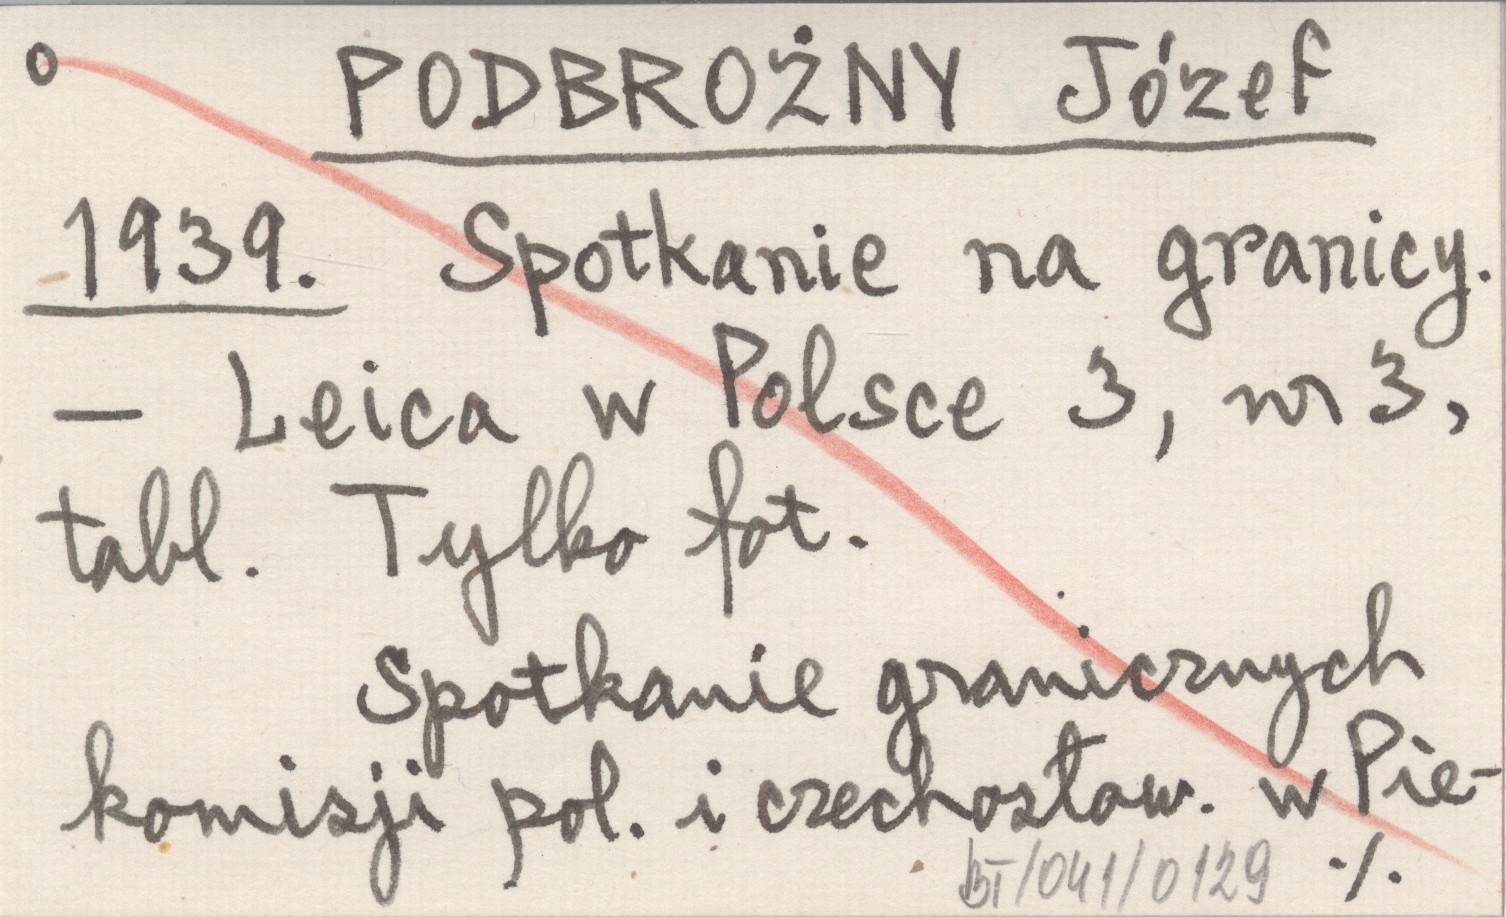 o PODBROŻNY Józef
1939. Spotkanie na granicy.
— Leica w Polsce 3, nr 3,
tabl. Tylko fot.
Spotkanie granicznych
komisji pol. i czechosłow. w Pie-
BT/041/0129 ./.